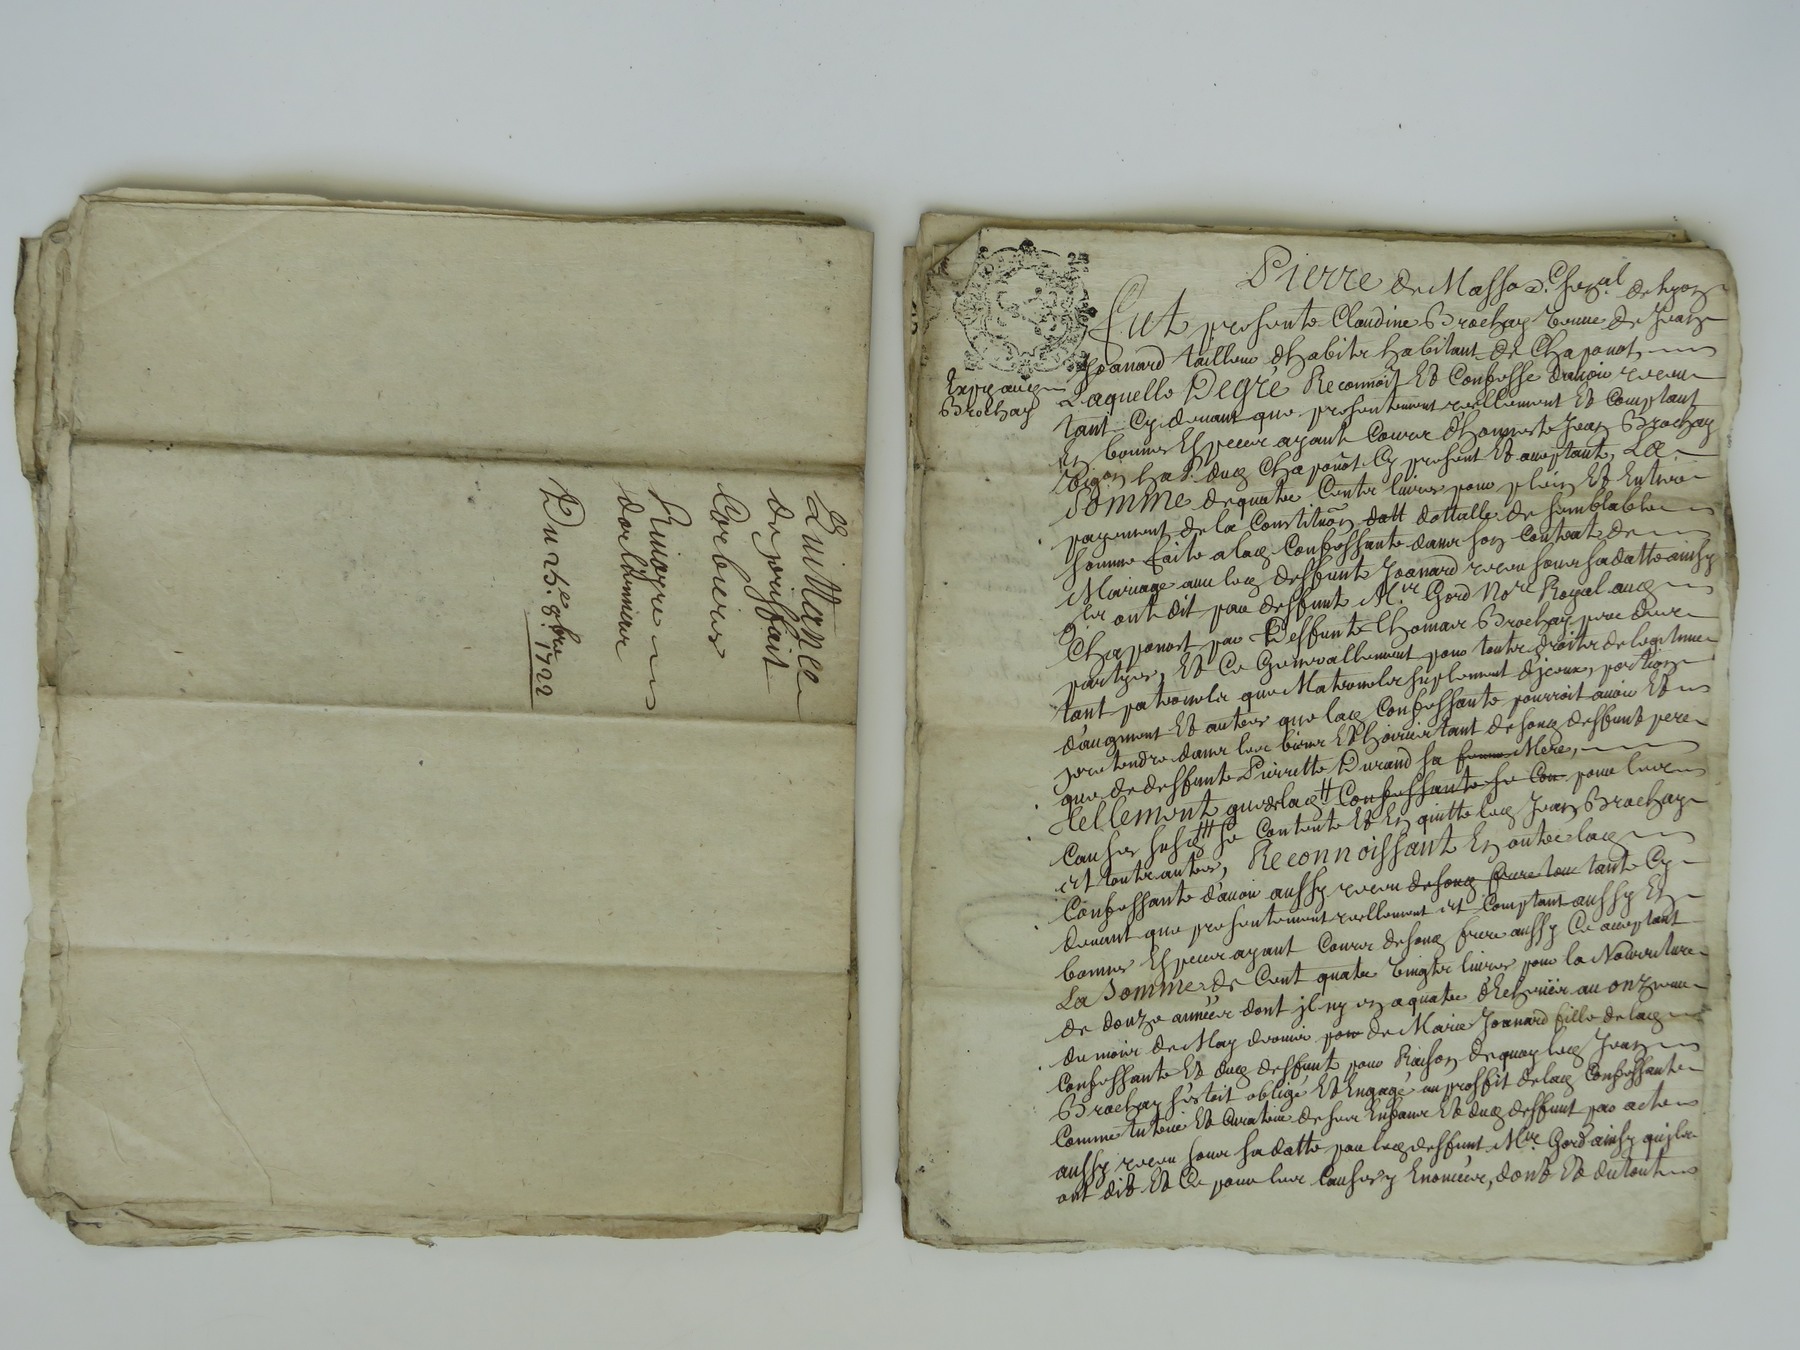 Quittance
de prix fait
Corbiere
Rivoyre
Du 25.e 8bre 1722
Pierre de Masso
Fut presente Claudine Brochay veuve de Jean
Joanard tailleur dhabits habitant de Chaponot
Brochay
Laquelle Degré Reconnoit Et Confesse davoir receu
tant Cy devant que presentement reellement Et Comptant
En bonnes Especes ayant Cours dhonneste Jean Brochay
Chaponot Cy present Et acceptant, La
Somme de quatre Cents livres pour plein Et Entier
payement de la Constitution dott de semblable
somme faite a lad Confessante dans son Contrat de
Mariage avec led deffunt Joanard receu sous sa datte ainsy
quils ont dit par deffunt Mr Gord Nore Royal aud
Chaponost par Deffunt Thomas Brochay pere des
partyes, Et Ce Generallement pour touts droits de legitime
tant paternels que Maternels suplement dyceux, portion
daugment Et autres que lad Confessante pourroit avoir Et
pretendre dans les biens Et hoiries tant de son deffunt pere
que de deffunte Pierrette Durand sa Mere,
tellement que lad Confessante pour leurs
Causes se Contente Et En quitte led Jean Brochay
et touts autres, Reconnoissant En outre lad
Confessante davoir aussy receu de son frere tant Cy
devant que presentement reellement et Comptant aussy En
bonnes Especes ayant Cours de son frere aussy Ce acceptant
La Somme de Cent quatre vingts livres pour la Nourriture
de douze années dont jl ny en a quatre au onzieme
du mois de May dernier de Marie Joanard fille de lad
Confessante Et dud deffunt pour Raison dequoy led Jean
Brochay sestoit obligé Et Engagé au proffit de lad Confessante
Comme tutrice Et Curatrice de ses Enfans Et dud deffunt par acte
aussy receu sous sa datte par led deffunt Mr Gord ainsy quils
ont dit Et Ce pour les Causes y Enoncées, dont Et du tout